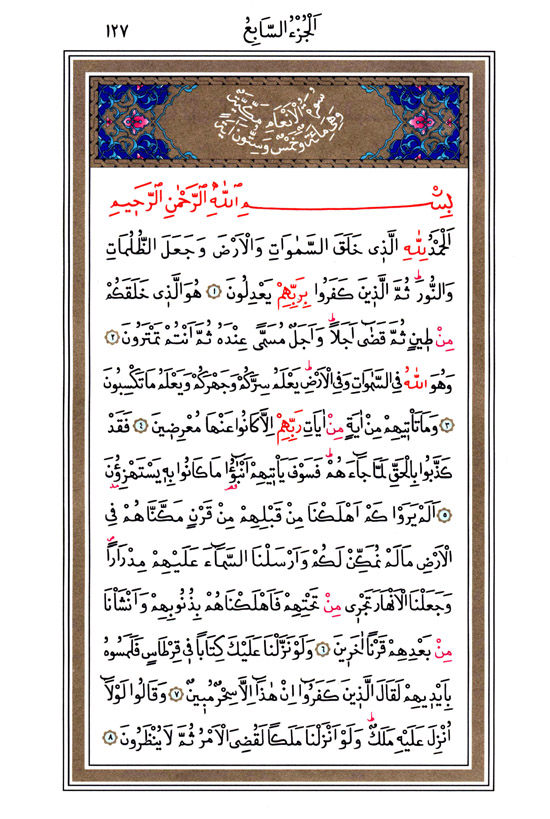 اَلْجُزْءُ السَّابِعُ
١٢٧
سُورَةُ الْاَنْعَامِ مَكِّيَّةٌ
وَهِيَ مِائَةٌ وَخَمْسٌ وَسِتُّونَ اٰيَةً
بِسْمِ اللّٰهِ الرَّحْمٰنِ الرَّحٖيمِ
اَلْحَمْدُ لِلّٰهِ الَّذٖى خَلَقَ السَّمٰوَاتِ وَالْاَرْضَ وَجَعَلَ الظُّلُمَاتِ
وَالنُّورَۜ ثُمَّ الَّذٖينَ كَفَرُوا بِرَبِّهِمْ يَعْدِلُونَ ﴿١﴾ هُوَ الَّذٖى خَلَقَكُمْ
مِنْ طٖينٍ ثُمَّ قَضٰٓى اَجَلاًۜ وَاَجَلٌ مُسَمًّى عِنْدَهُ ثُمَّ اَنْتُمْ تَمْتَرُونَ ﴿٢﴾
وَهُوَ اللّٰهُ فِى السَّمٰوَاتِ وَفِى الْاَرْضِۜ يَعْلَمُ سِرَّكُمْ وَجَهْرَكُمْ وَيَعْلَمُ مَا تَكْسِبُونَ
﴿٣﴾ وَمَا تَأْتٖيهِمْ مِنْ اٰيَةٍ مِنْ اٰيَاتِ رَبِّهِمْ اِلَّا كَانُوا عَنْهَا مُعْرِضٖينَ ﴿٤﴾ فَقَدْ
كَذَّبُوا بِالْحَقِّ لَمَّا جَٓاءَهُمْۜ فَسَوْفَ يَأْتٖيهِمْ اَنْبٰٓؤُ۬ا مَا كَانُوا بِهٖ يَسْتَهْزِؤُ۫نَ
﴿٥﴾ اَلَمْ يَرَوْا كَمْ اَهْلَكْنَا مِنْ قَبْلِهِمْ مِنْ قَرْنٍ مَكَّنَّاهُمْ فِى
الْاَرْضِ مَا لَمْ نُمَكِّنْ لَكُمْ وَاَرْسَلْنَا السَّمَٓاءَ عَلَيْهِمْ مِدْرَاراًۖ
وَجَعَلْنَا الْاَنْهَارَ تَجْرٖى مِنْ تَحْتِهِمْ فَاَهْلَكْنَاهُمْ بِذُنُوبِهِمْ وَاَنْشَأْنَا
مِنْ بَعْدِهِمْ قَرْناً اٰخَرٖينَ ﴿٦﴾ وَلَوْ نَزَّلْنَا عَلَيْكَ كِتَاباً فٖى قِرْطَاسٍ فَلَمَسُوهُ
بِاَيْدٖيهِمْ لَقَالَ الَّذٖينَ كَفَرُٓوا اِنْ هٰذَٓا اِلَّا سِحْرٌ مُبٖينٌ ﴿٧﴾ وَقَالُوا لَوْلَٓا
اُنْزِلَ عَلَيْهِ مَلَكٌۜ وَلَوْ اَنْزَلْنَا مَلَكاً لَقُضِىَ الْاَمْرُ ثُمَّ لَا يُنْظَرُونَ ﴿٨﴾